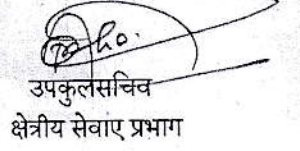 उपकुलसचिव
क्षेत्रीय सेवाएं प्रभाग